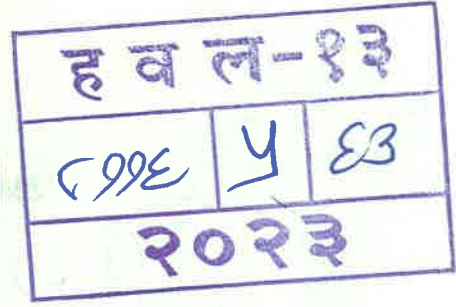 ह व ल-१३
८११६ ५ ६३
२०२३